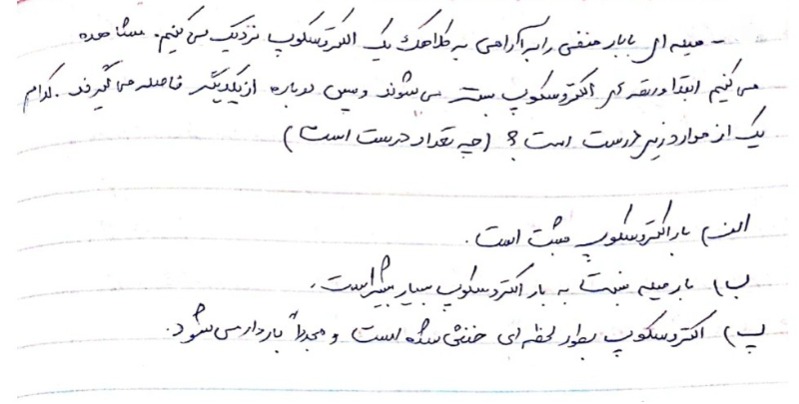 - میله ای با بار منفی را به آرامی به کلاهک یک الکتروسکوپ نزدیک می کنیم. مشاهده
می کنیم ابتدا ورقه های الکتروسکوپ بسته می شوند و سپس دوباره از یکدیگر فاصله می گیرند. کدام
یک از موارد زیر درست است؟ (چه تعداد درست است)
الف) بار الکتروسکوپ مثبت است.
ب) بار میله نسبت به بار الکتروسکوپ بسیار بیشتر است.
پ) الکتروسکوپ بطور لحظه ای خنثی شده است و مجدداً باردار می شود.